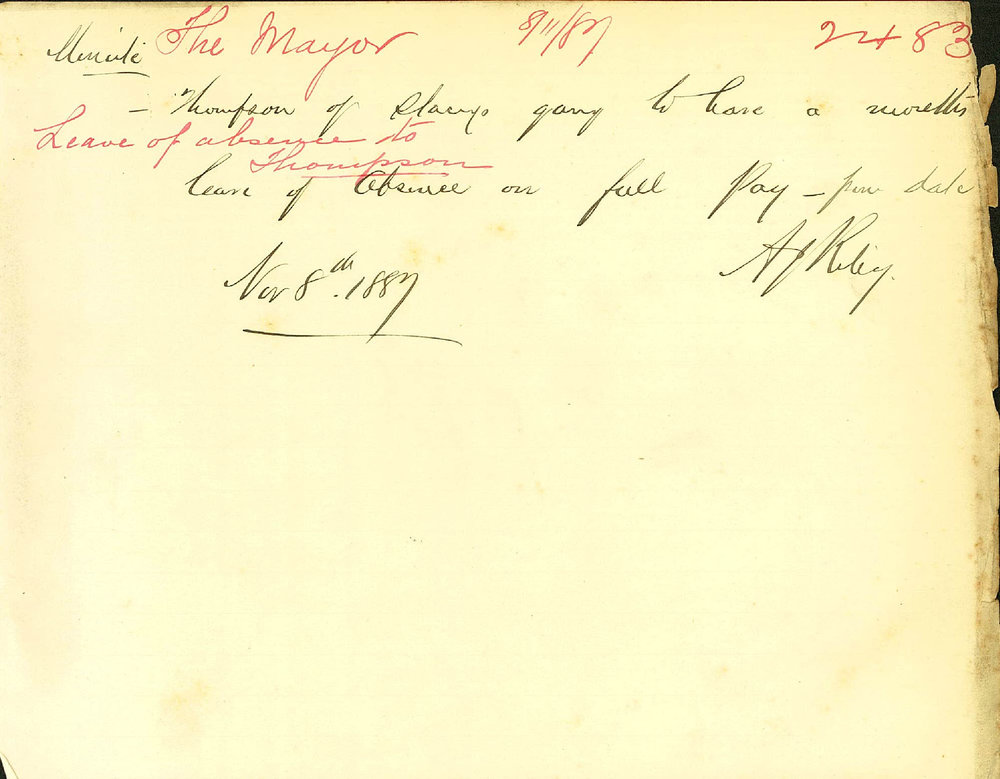 Minute The Mayor 8/11/87 2483
- Thompson of Stacey's gang to have a months
Leave of absence to
Thompson
leave of Absence on full Pay - from date
A J Riley.
Nov 8th. 1887